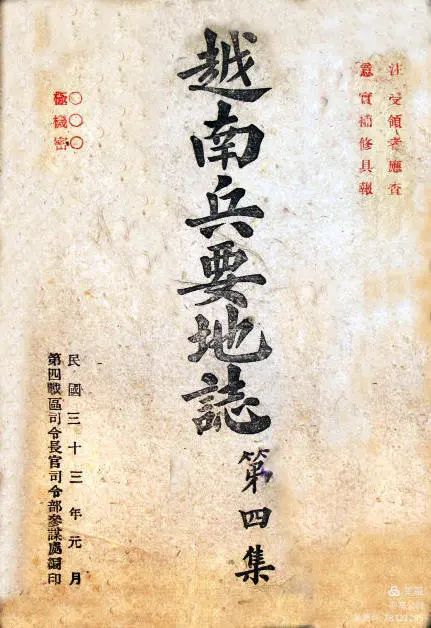 注 受領者應查
意 實補修具報
越南兵要地誌
第四集
○○○
極機密
民國三十三年元月
第四戰區司令長官司令部參謀處編印